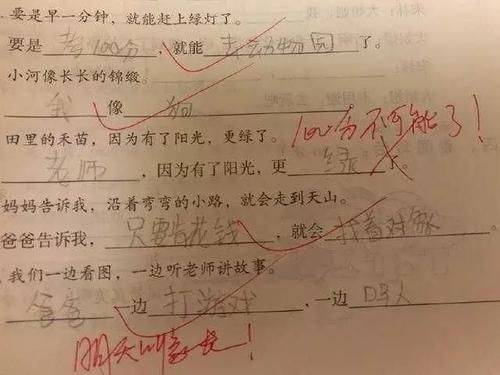 要是早一分钟，就能赶上绿灯了。
要是 考100分 ，就能 去动物园 了。
小河像长长的锦缎。
我 像 狗
田里的禾苗，因为有了阳光，更绿了。
100分不可能了！
老师 ，因为有了阳光，更 绿 了。
妈妈告诉我，沿着弯弯的小路，就会走到天山。
爸爸告诉我， 只要肯花钱 ，就会 找着对象 。
我们一边看图，一边听老师讲故事。
爸爸 一边 打游戏 ，一边 叼人
明天叫家长！